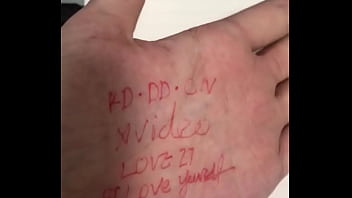 KD.DD.CN
Xvideo
LOVE 27
LOVE yourself